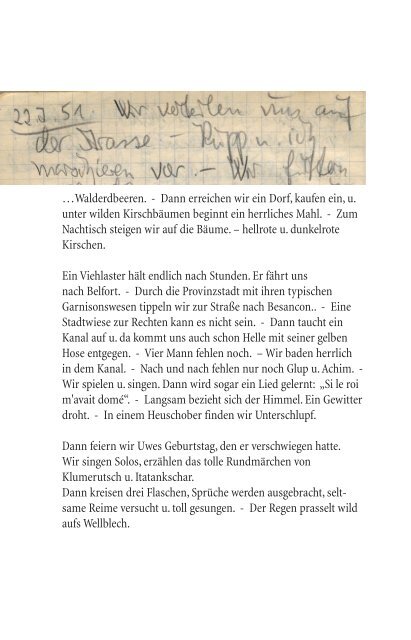 22.7.51. Wir verteilen uns auf
der Strasse – Rupp u. ich
marschieren vor. – Wir
…Walderdbeeren. - Dann erreichen wir ein Dorf, kaufen ein, u.
unter wilden Kirschbäumen beginnt ein herrliches Mahl. - Zum
Nachtisch steigen wir auf die Bäume. – hellrote u. dunkelrote
Kirschen.
Ein Viehlaster hält endlich nach Stunden. Er fährt uns
nach Belfort. - Durch die Provinzstadt mit ihren typischen
Garnisonswesen tippeln wir zur Straße nach Besancon.. - Eine
Stadtwiese zur Rechten kann es nicht sein. - Dann taucht ein
Kanal auf u. da kommt uns auch schon Helle mit seiner gelben
Hose entgegen. - Vier Mann fehlen noch. – Wir baden herrlich
in dem Kanal. - Nach und nach fehlen nur noch Glup u. Achim. -
Wir spielen u. singen. Dann wird sogar ein Lied gelernt: „Si le roi
m'avait domé“. - Langsam bezieht sich der Himmel. Ein Gewitter
droht. - In einem Heuschober finden wir Unterschlupf.
Dann feiern wir Uwes Geburtstag, den er verschwiegen hatte.
Wir singen Solos, erzählen das tolle Rundmärchen von
Klumerutsch u. Itatankschar.
Dann kreisen drei Flaschen, Sprüche werden ausgebracht, selt-
same Reime versucht u. toll gesungen. - Der Regen prasselt wild
aufs Wellblech.